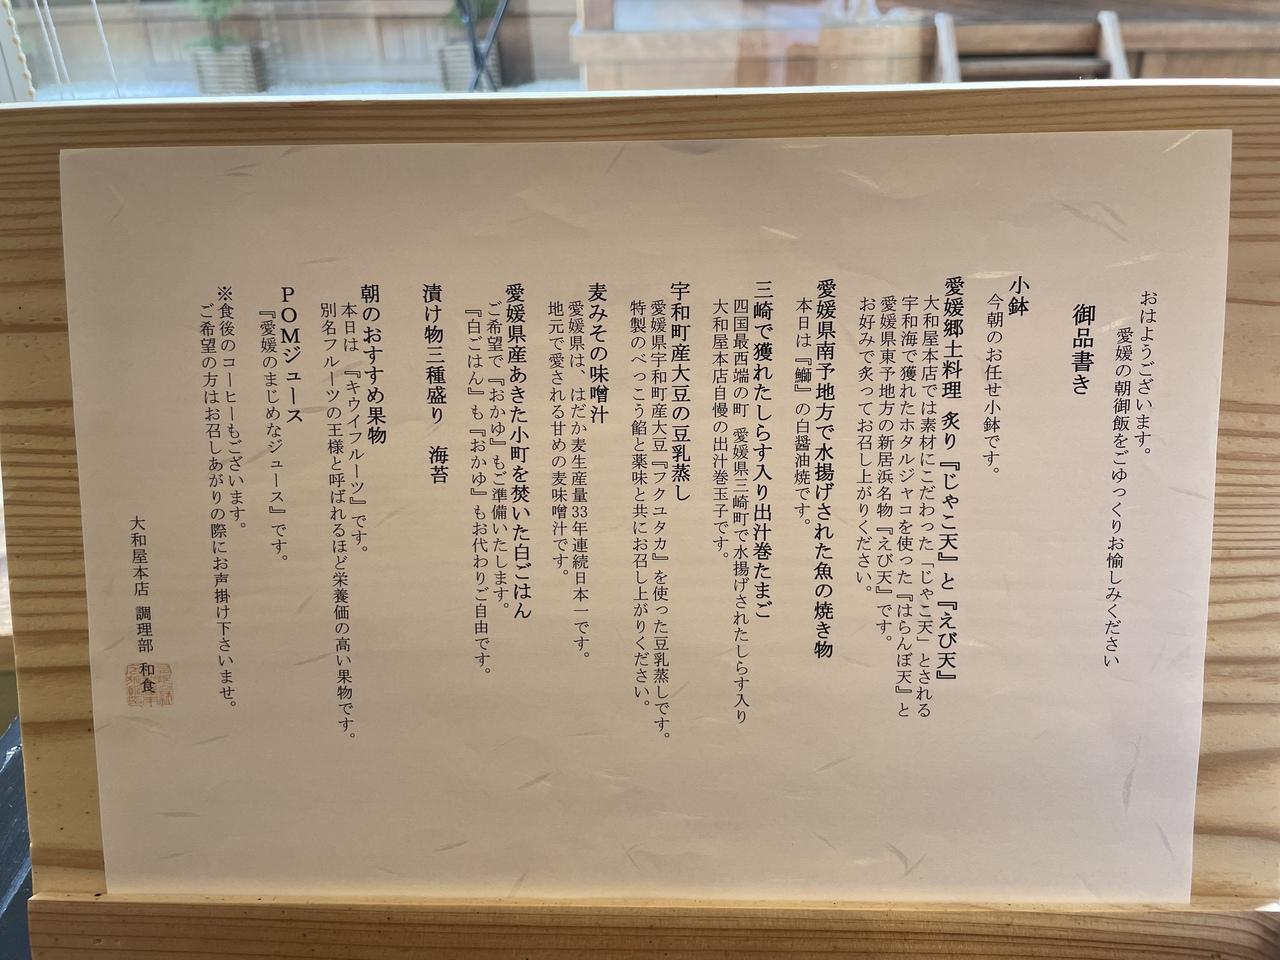 おはようございます。
愛媛の朝御飯をごゆっくりお愉しみください
御品書き
小鉢
今朝のお任せ小鉢です。
愛媛郷土料理 炙り『じゃこ天』と『えび天』
大和屋本店では素材にこだわった「じゃこ天」とされる
宇和海で獲れたホタルジャコを使った『はらんぼ天』と
愛媛県東予地方の新居浜名物『えび天』です。
お好みで炙ってお召し上がりください。
愛媛県南予地方で水揚げされた魚の焼き物
本日は『鰤』の白醤油焼です。
三崎で獲れたしらす入り出汁巻たまご
四国最西端の町 愛媛県三崎町で水揚げされたしらす入り
大和屋本店自慢の出汁巻玉子です。
宇和町産大豆の豆乳蒸し
愛媛県宇和町産大豆『フクユタカ』を使った豆乳蒸しです。
特製のべっこう餡と薬味と共にお召し上がりください。
麦みその味噌汁
愛媛県は、はだか麦生産量33年連続日本一です。
地元で愛される甘めの麦味噌汁です。
愛媛県産あきた小町を焚いた白ごはん
ご希望で『おかゆ』もご準備いたします。
『白ごはん』も『おかゆ』もお代わりご自由です。
漬け物三種盛り 海苔
朝のおすすめ果物
本日は『キウイフルーツ』です。
別名フルーツの王様と呼ばれるほど栄養価の高い果物です。
POMジュース
『愛媛のまじめなジュース』です。
※食後のコーヒーもございます。
ご希望の方はお召しあがりの際にお声掛け下さいませ。
大和屋本店 調理部 和食